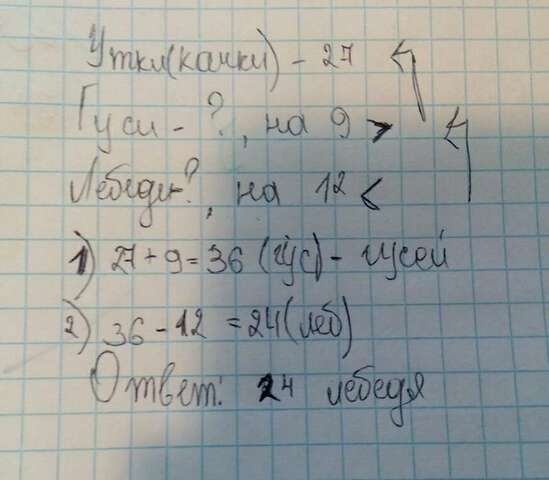 Утки(качки) - 27
Гуси - ?, на 9 >
Лебеди-?, на 12 <
1) 27 + 9 = 36 (гус) - гусей
2) 36 - 12 = 24 (леб)
Ответ: 24 лебедя